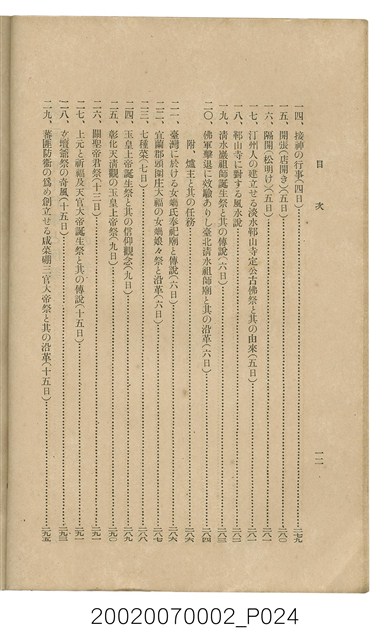 目次
一二
一四、接神の行事(四日)…二七九
一五、開張(店開き)(五日)…二八〇
一六、隔開(松明け)(五日)…二八一
一七、汀州人の建立せる淡水鄞山寺定公古佛祭と其の由來(五日)…二八一
一八、鄞山寺に對する風水說…二八二
一九、清水巖祖師誕生祭と其の傳說(六日)…二八三
二〇、佛軍擊退に效驗ありし臺北清水祖師廟と其の沿革(六日)…二八四
附、爐主と其の任務…二八六
二一、臺灣に於ける女媧氏奉祀廟と傳說(六日)…二八六
二二、宜蘭郡頭圍庄大福の女媧娘々祭と沿革(六日)…二八七
二三、七種菜(七日)…二八八
二四、玉皇上帝誕生祭と其の信仰觀念(九日)…二八九
二五、彰化天清觀の玉皇上帝祭(九日)…二九〇
二六、關聖帝君祭(十三日)…二九一
二七、上元と祈福及天官大帝誕生祭と其の傳說(十五日)…二九一
二八、立壇爺祭の奇風(十五日)…二九三
二九、蕃匪防衞の爲め創立せる成菜硼三官大帝祭と其の沿革(十五日)…二九五
20020070002_P024